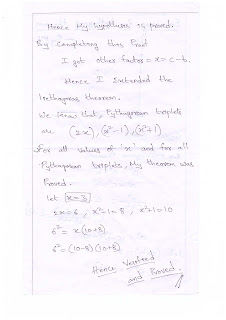 Hence My hypothesis is proved.
By Completing this Proof
I got other factor = x = c-b.
Hence I Extended the
Pythagoras theorem.
We know that, Pythagorean triplets
are (2x), (x²-1), (x²+1)
For all values of 'x' and for all
Pythagorean triplets, My theorem was
Proved.
Let x=3
2x=6, x²-1=8, x²+1=10
6²= x(10+8)
6²= (10-8)(10+8)
Hence Verified
and Proved.